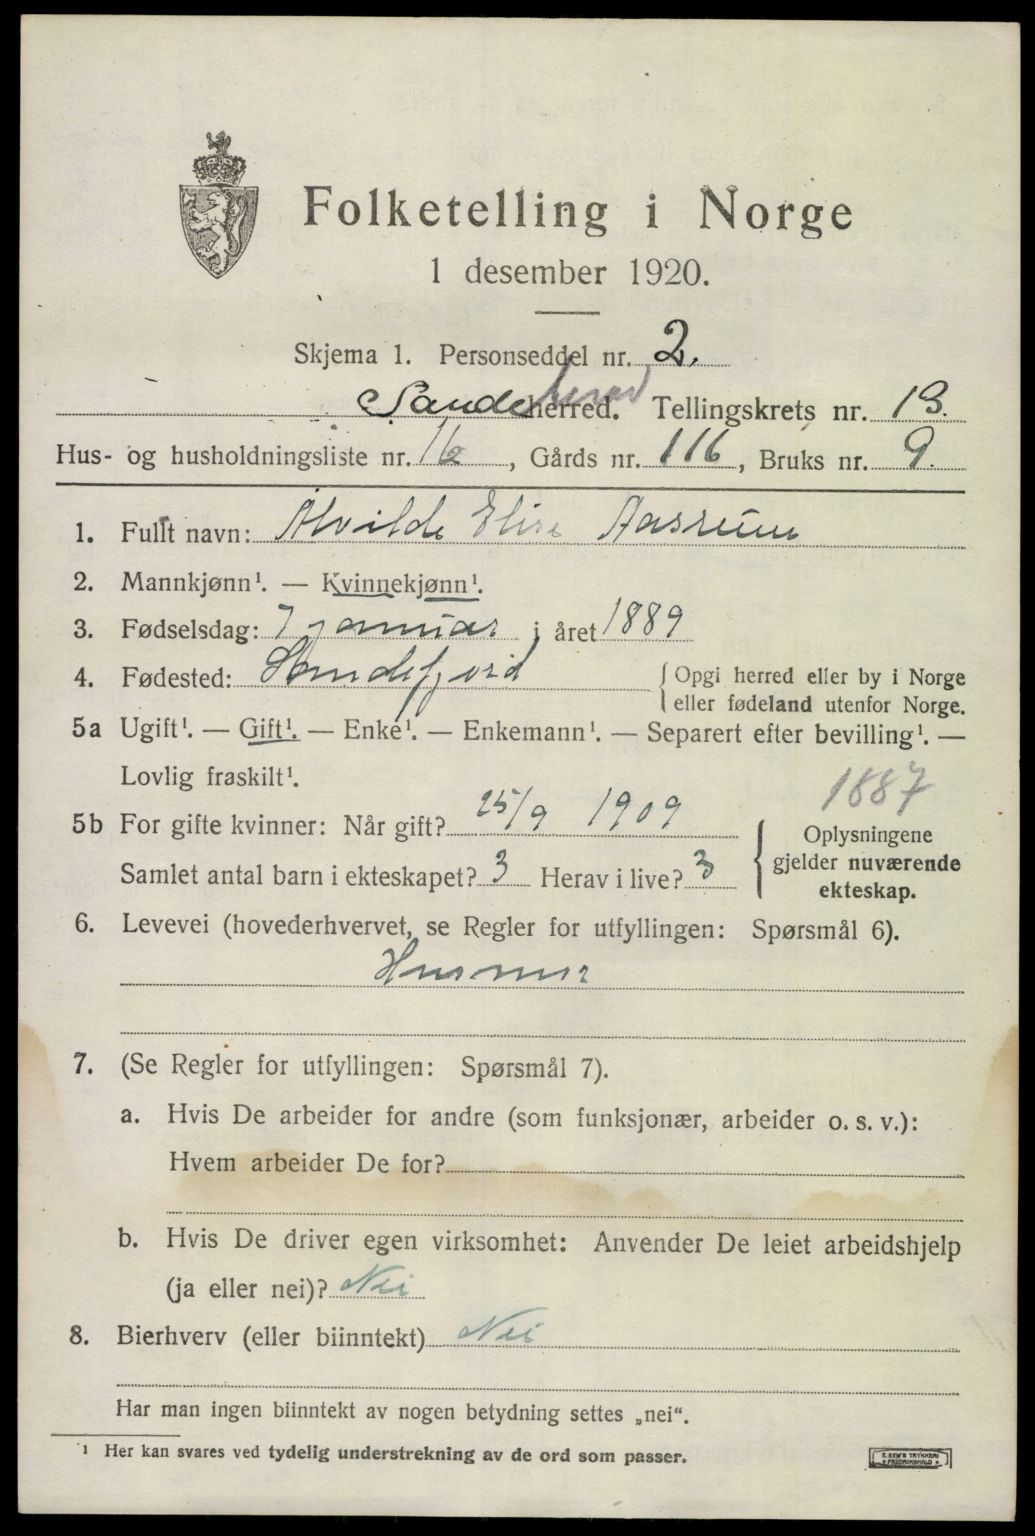 Folketelling i Norge
1 desember 1920.
Skjema 1. Personseddel nr. 2.
Sandeherred. Tellingskrets nr. 13.
Hus- og husholdningsliste nr. 16, Gårds nr. 116, Bruks nr. 9.
1. Fullt navn: Alvilde Elise Aasrum
2. Mannkjønn¹. — Kvinnekjønn¹.
3. Fødselsdag: 7 januar i året 1889
4. Fødested: Sandefjord { Opgi herred eller by i Norge
eller fødeland utenfor Norge.
5a Ugift¹. — Gift¹. — Enke¹. — Enkemann¹. — Separert efter bevilling¹. —
Lovlig fraskilt¹.
1887
5b For gifte kvinner: Når gift? 25/9 1909
Samlet antal barn i ekteskapet? 3 Herav i live? 3
{ Oplysningene
gjelder nuværende
ekteskap.
6. Levevei (hovederhvervet, se Regler for utfyllingen: Spørsmål 6).
Husmor
7. (Se Regler for utfyllingen: Spørsmål 7).
a. Hvis De arbeider for andre (som funksjonær, arbeider o. s. v.):
Hvem arbeider De for?
b. Hvis De driver egen virksomhet: Anvender De leiet arbeidshjelp
(ja eller nei)? Nei
8. Bierhverv (eller biinntekt) Nei
Har man ingen biinntekt av nogen betydning settes „nei“.
¹ Her kan svares ved tydelig understrekning av de ord som passer.